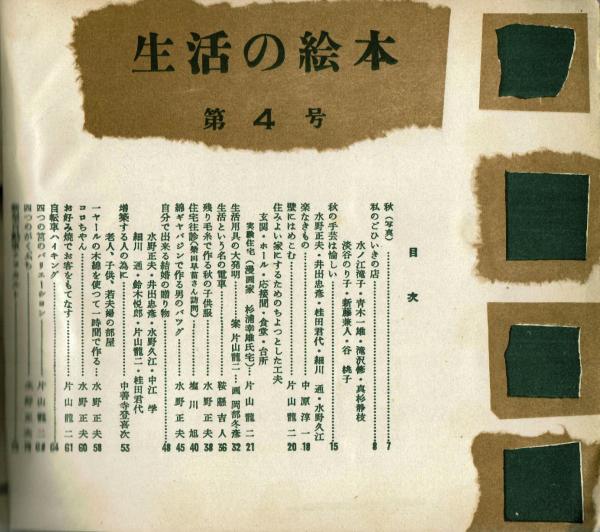 生活の絵本
第4号
目次
秋(写真)……7
私のごひいきの店……8
水ノ江滝子・青木一雄・滝沢修・真杉静枝
淡谷のり子・新藤兼人・谷 桃子
秋の手芸は愉しい……15
水野正夫・井出忠彦・桂田君代・細川 通・水野久江
楽なきもの……中原淳一 18
壁にはめこむ……片山龍二 20
住みよい家にするためのちょっとした工夫
玄関・ホール・応接間・食堂・台所
実験住宅(漫画家 杉浦幸雄氏宅)…片山龍二 21
生活用具の大発明……案 片山龍二…画 岡部冬彦 32
生活という名の電車……鞍懸吉人 36
残り毛糸で作る秋の子供服……水野正夫 38
住宅往診……塩川 旭 40
綿ギャバジンで作る男のバッグ……水野正夫 45
自分で出来る結婚の贈り物……48
水野正夫・井出忠彦・水野久江・中江 学
細川 通・鈴木悦郎・片山龍二・桂田君代
増築する人の為に……中善寺登喜次 53
老人、子供、若夫婦の部屋
一ヤールの木綿を使って一時間で作る…水野正夫 58
コロちゃん……水野正夫 60
お好み焼でお客をもてなす……片山龍二 61
自転車ハイキング……64
四つの窓のバリエーション……片山龍二